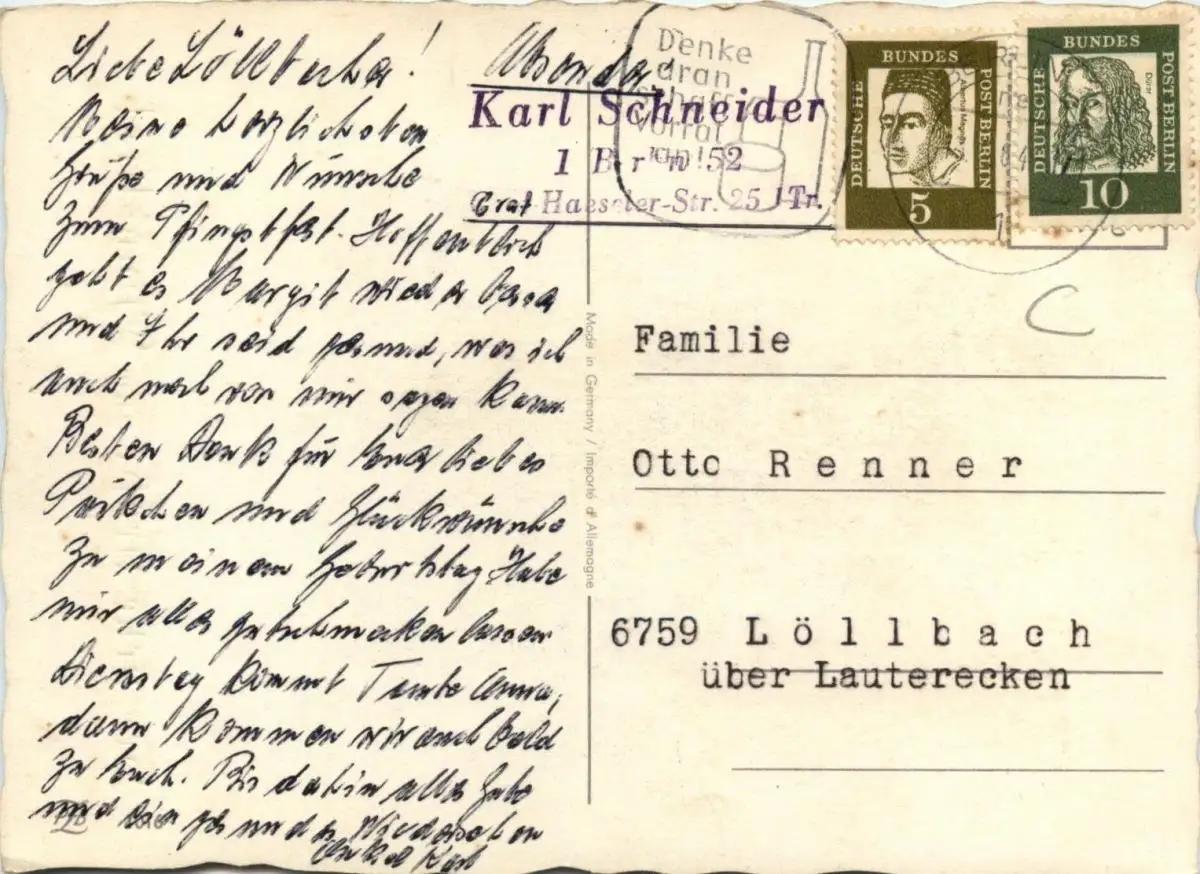 Liebe Löllbacher!
Meine herzlichsten
Grüße und Wünsche
zum Pfingstfest. Hoffentlich
geht es Margit wieder besser
und Ihr seid gesund, was ich
auch noch von mir sagen kann.
Besten Dank für Euer liebes
Päckchen und Glückwünsche
zu meinem Geburtstag. Habe
mir alles gut schmecken lassen
Dienstag kommt Tante Anna,
dann kommen wir auch bald
zu Euch. Bis dahin alles Gute
und ein gesundes Wiedersehen
Onkel Karl
Absender
Karl Schneider
1 Berlin 52
Graf Haeseler-Str. 25 I Tr.
Denke
dran
schaff
Vorrat
an!
DEUTSCHE BUNDES POST BERLIN
5
DEUTSCHE BUNDES POST BERLIN
Dürer
10
Made in Germany / Importé d'Allemagne
Familie
Otto Renner
6759 Löllbach
über Lauterecken